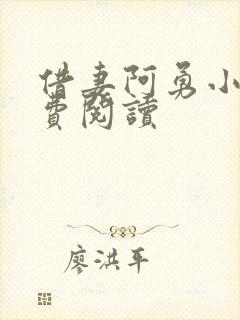 借妻阿勇小
費閱讀
廖洪平